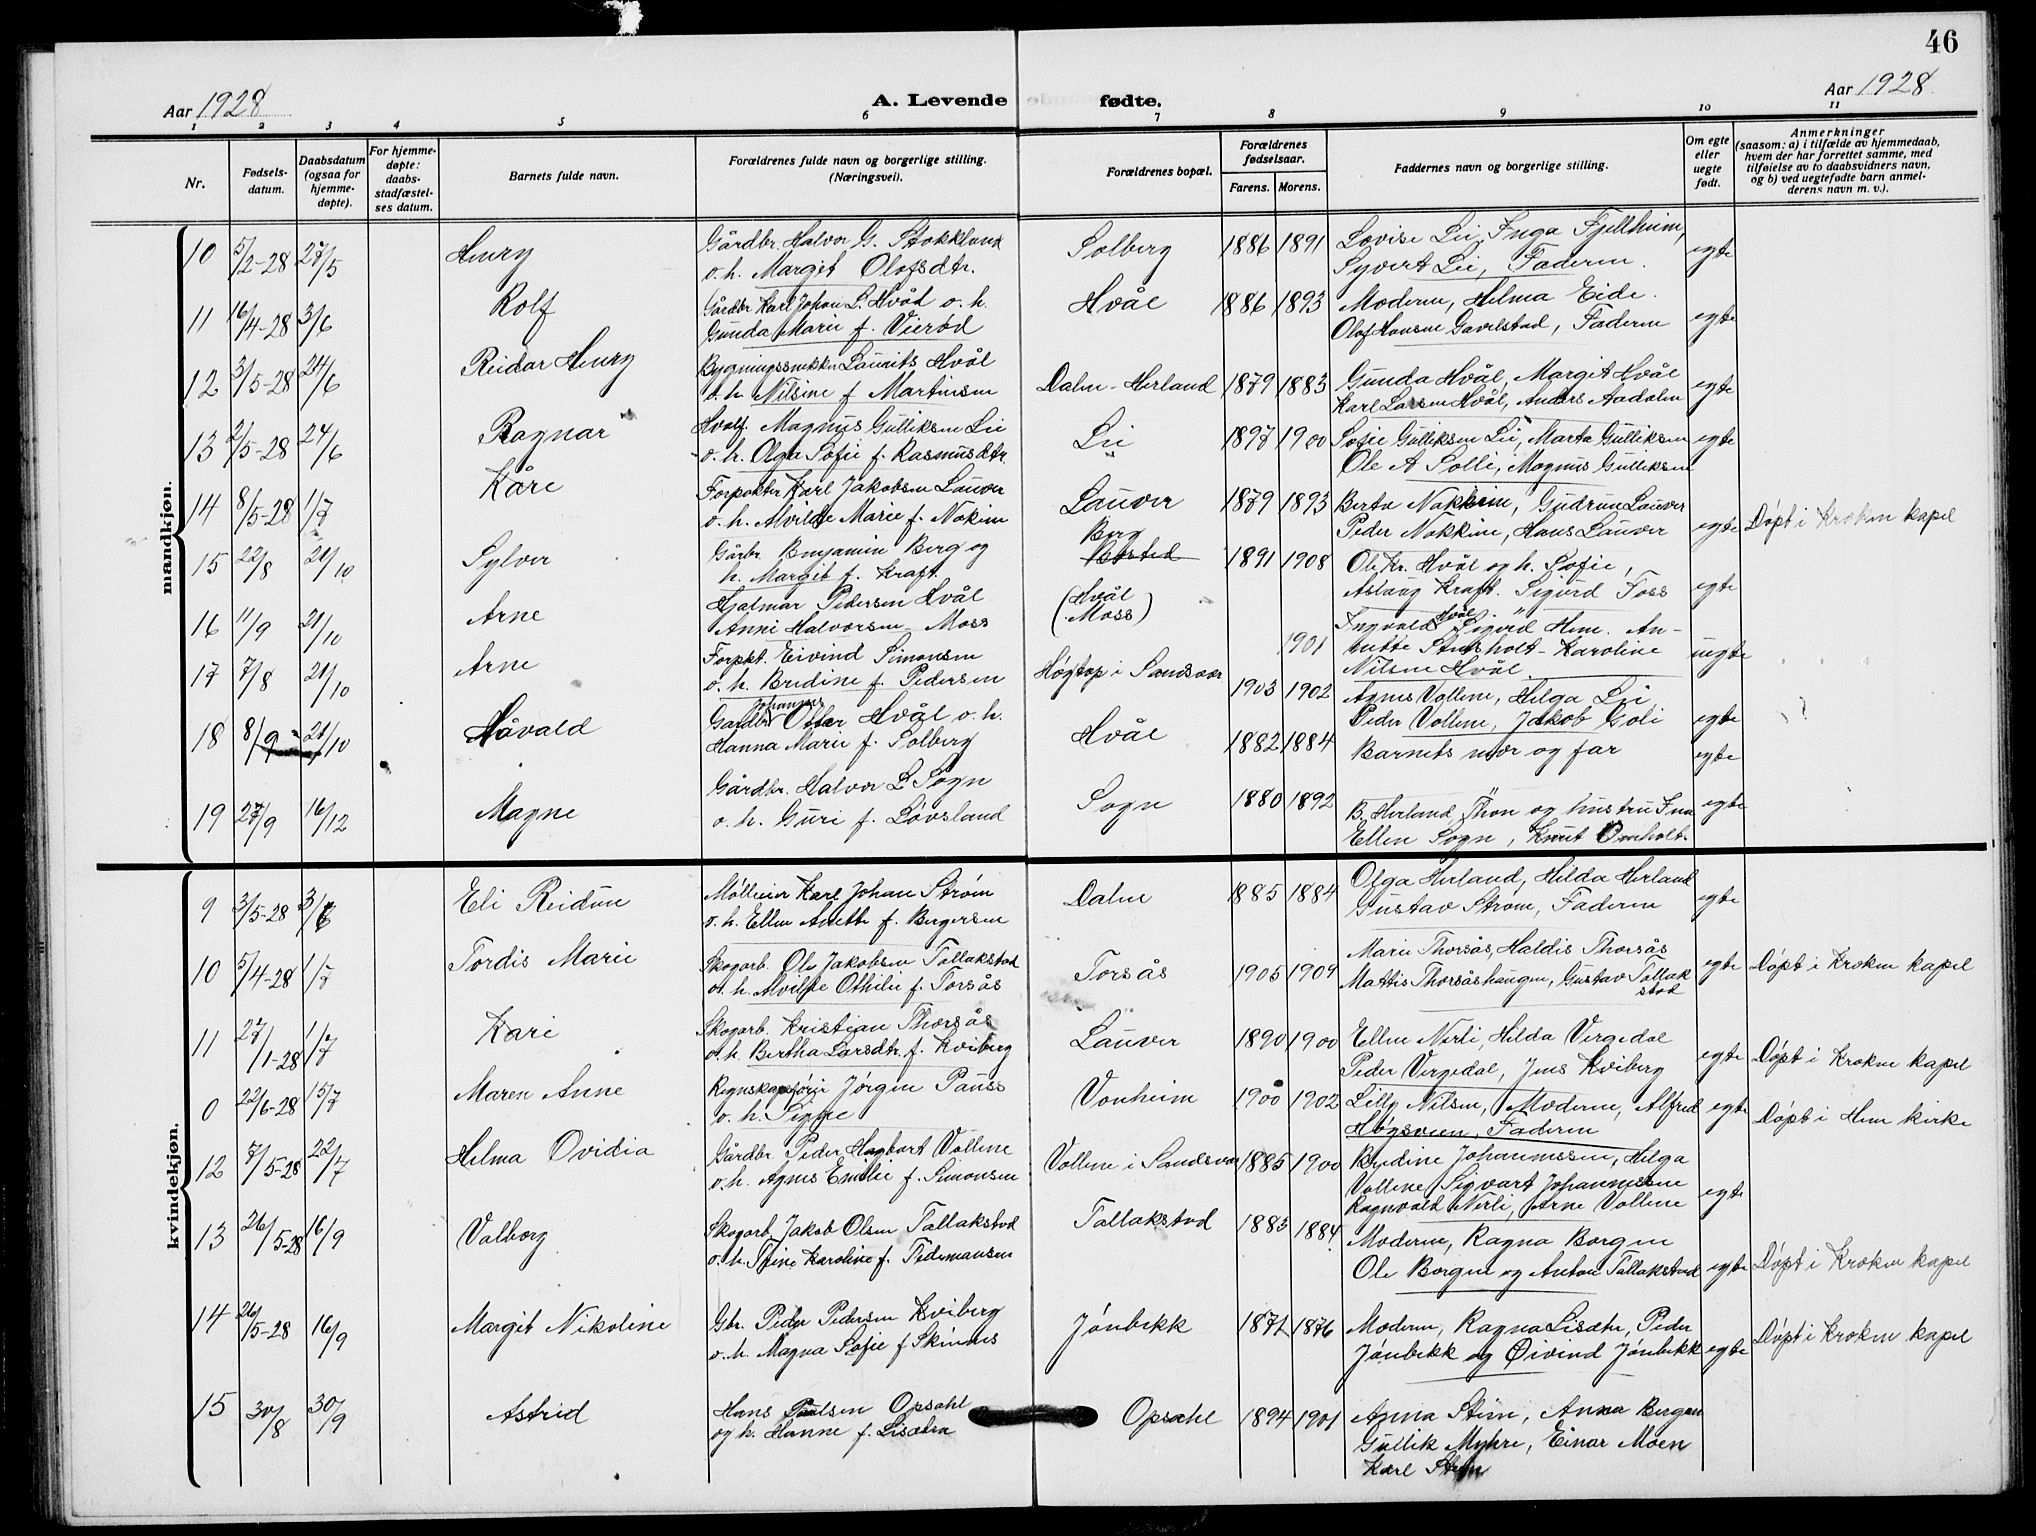 46
Aar 1928 A. Levende fødte. Aar 1928
1 2 3 4 5 6 7 8 9 10 11
Nr.
Fødsels-
datum.
Daabsdatum
(ogsaa for
hjemme-
døpte).
For hjemme-
døpte:
daabs-
stadfæstel-
ses datum.
Barnets fulde navn.
Forældrenes fulde navn og borgerlige stilling.
(Næringsvei).
Forældrenes bopæl.
Forældrenes
fødselsaar.
Farens. Morens.
Faddernes navn og borgerlige stilling.
Om egte
eller
uegte
født.
Anmerkninger
(saasom: a) i tilfælde av hjemmedaab,
hvem der har forrettet samme, med
tilføielse av to daabsvidners navn,
og b) ved uegtefødte barn anmel-
derens navn m. v.).
mandkjøn.
10 5/2-28 27/5 Henry Gårdbr. Halvor G. Stokkland Solberg 1886 1891 Lovise Lie, Inga Fjellheim, egte
o. h. Margit Olofsdtr. Syvert Lie, Faderen.
11 16/4-28 3/6 Rolf Gårdbr Karl Johan L. Hvål o. h. Hvål 1886 1893 Moderen, Helma Eide. egte
Gunda Marie f. Vierød Olof Hansen Gavelstad, Faderen
12 3/5-28 24/6 Reidar Henry Bygningssnekker Laurits Hvål Dalen-Herland 1879 1883 Gunda Hvål, Margit Hvål egte
o. h. Nilsine f. Martinsen Karl Larsen Hvål, Anders Aadalen
13 2/5-28 24/6 Ragnar Hvalf. Magnus Gulliksen Lie Lie 1897 1900 Sofie Gulliksen Lie, Marta Gulliksen egte
o. h. Olga Sofie f. Rasmusdtr. Ole A Solli, Magnus Gulliksen
14 8/5-28 1/7 Kåre Forpakter Karl Jakobsen Lauver Lauver 1879 1893 Berta Nokkim, Gudrun Lauver egte Døpt i Kroken kapel
o. h. Alvilde Marie f. Nokim Peder Nokkim, Hans Lauver
15 22/8 21/10 Sylver Gårbr Benjamin Berg og Berg 1891 1908 Ole Kr. Hvål og h. Sofie, egte
h. Margit f. Kraft. Aslaug Kraft. Sigurd Foss
16 11/9 21/10 Arne Hjalmar Pedersen Hvål (Hvål 1901 Ingvald Hvål, Sigurd Hem. An- uegte
Anni Halvorsen Moss Moss) nette Stensholt - Karoline
Nilsen Hvål.
17 7/8 21/10 Arne Forpkt. Eivind Simonsen Høgtop i Sandsvær 1903 1902 Agnes Vollene, Helga Lie egte
o. h. Bredine f. Pedersen Peder Vollene, Jakob Goli
18 8/9 21/10 Håvald Gårdbr Johannes Hvål o. h. Hvål 1882 1884 Barnets mor og far egte
Hanna Marie f. Solberg
19 27/9 16/12 Magne Gårdbr. Halvor L. Sogn Sogn 1880 1892 B. Herland Thon og hustru Ina egte
o. h. Guri f. Løvsland Ellen Sogn, Knut Omholt.
kvindekjøn.
9 3/5-28 3/6 Eli Reidun Mølleier Karl Johan Strøm Dalen 1885 1884 Olga Herland, Hilda Herland egte
o. h. Ellen Anette f. Bergersen Gustav Strøm, Faderen
10 5/4-28 1/7 Tordis Marie Skogarb. Ole Jakobsen Tallakstad Torsås 1905 1909 Marie Thorsås, Haldis Thorsås egte Døpt i Kroken kapel
o. h. Alvilde Othilie f. Torsås Mattis Thorsåshaugen, Gustav Tallak
stad
11 27/1-28 1/7 Kari Skogarb. Kristian Thorsås Lauver 1890 1900 Ellen Nerli, Hilda Vergedal egte Døpt i Kroken kapel
o. h. Bertha Larsdtr. f. Kviberg Peder Vergedal, Jens Kviberg
0 22/6-28 15/7 Maren Anne Regnskapsfører Jørgen Pauss Vonheim 1900 1902 Lilly Nilsen, Moderen, Alfred egte Døpt i Hem kirke
o. h. Signe Høgsveen, Faderen
12 7/5-28 22/7 Helma Ovidia Gårdbr. Peder Hagbart Vollene Vollene i Sandsvær 1885 1900 Bredine Johannessen, Helga egte
o. h. Agnes Emilie f. Simonsen Vollene, Sigvart Johannessen
Ragnvald Nerli, Arne Vollene
13 26/5-28 16/9 Valborg Skogarb Jakob Olsen Tallakstad Tallakstad 1883 1884 Moderen, Ragna Borgen egte Døpt i Kroken kapel
o. h. Trine Karoline f. Tidemansen Ole Borgen og Anton Tallakstad
14 26/5-28 16/9 Margit Nikoline Gbr. Peder Pedersen Kviberg Jønbekk 1871 1876 Moderen, Ragna Liseter, Peder egte Døpt i Kroken kapel
o. h. Magna Sofie f Skinnes Jønbekk og Øivind Jønbekk
15 30/8 30/9 Astrid Hans Paulsen Opsahl Opsahl 1894 1901 Anna Steen, Anna Bergan
og h. Hanne f. Lisætra Gullik Myhre, Einar Moen
Karl Steen